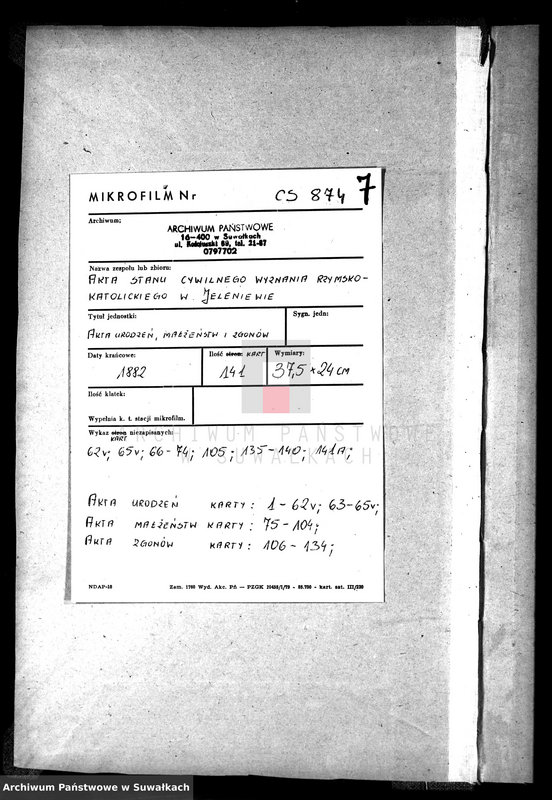 MIKROFILM Nr CS 874 7
Archiwum:
ARCHIWUM PAŃSTWOWE
16-400 w Suwałkach
ul. Kościuszki 69, tel. 21-67
0797702
Nazwa zespołu lub zbioru:
AKTA STANU CYWILNEGO WYZNANIA RZYMSKO-
KATOLICKIEGO W JELENIEWIE
Tytuł jednostki: Sygn. jedn:
AKTA URODZEŃ, MAŁŻEŃSTW I ZGONÓW
Daty krańcowe: Ilość stron: KART Wymiary:
1882 141 37,5 × 24 cm
Ilość klatek:
Wypełnia k. t. stacji mikrofilm.
Wykaz stron niezapisanych:
KART
62v; 65v; 66-74; 105; 135-140; 141A;
ARCHIWUM PAŃSTWOWE
W SUWAŁKACH
AKTA URODZEŃ KARTY: 1-62v; 63-65v;
AKTA MAŁŻEŃSTW KARTY: 75-104;
AKTA ZGONÓW KARTY: 106-134;
NDAP-18 Zam. 1780 Wyd. Akc. Pń — PZGK
Archiwum Państwowe w Suwałkach